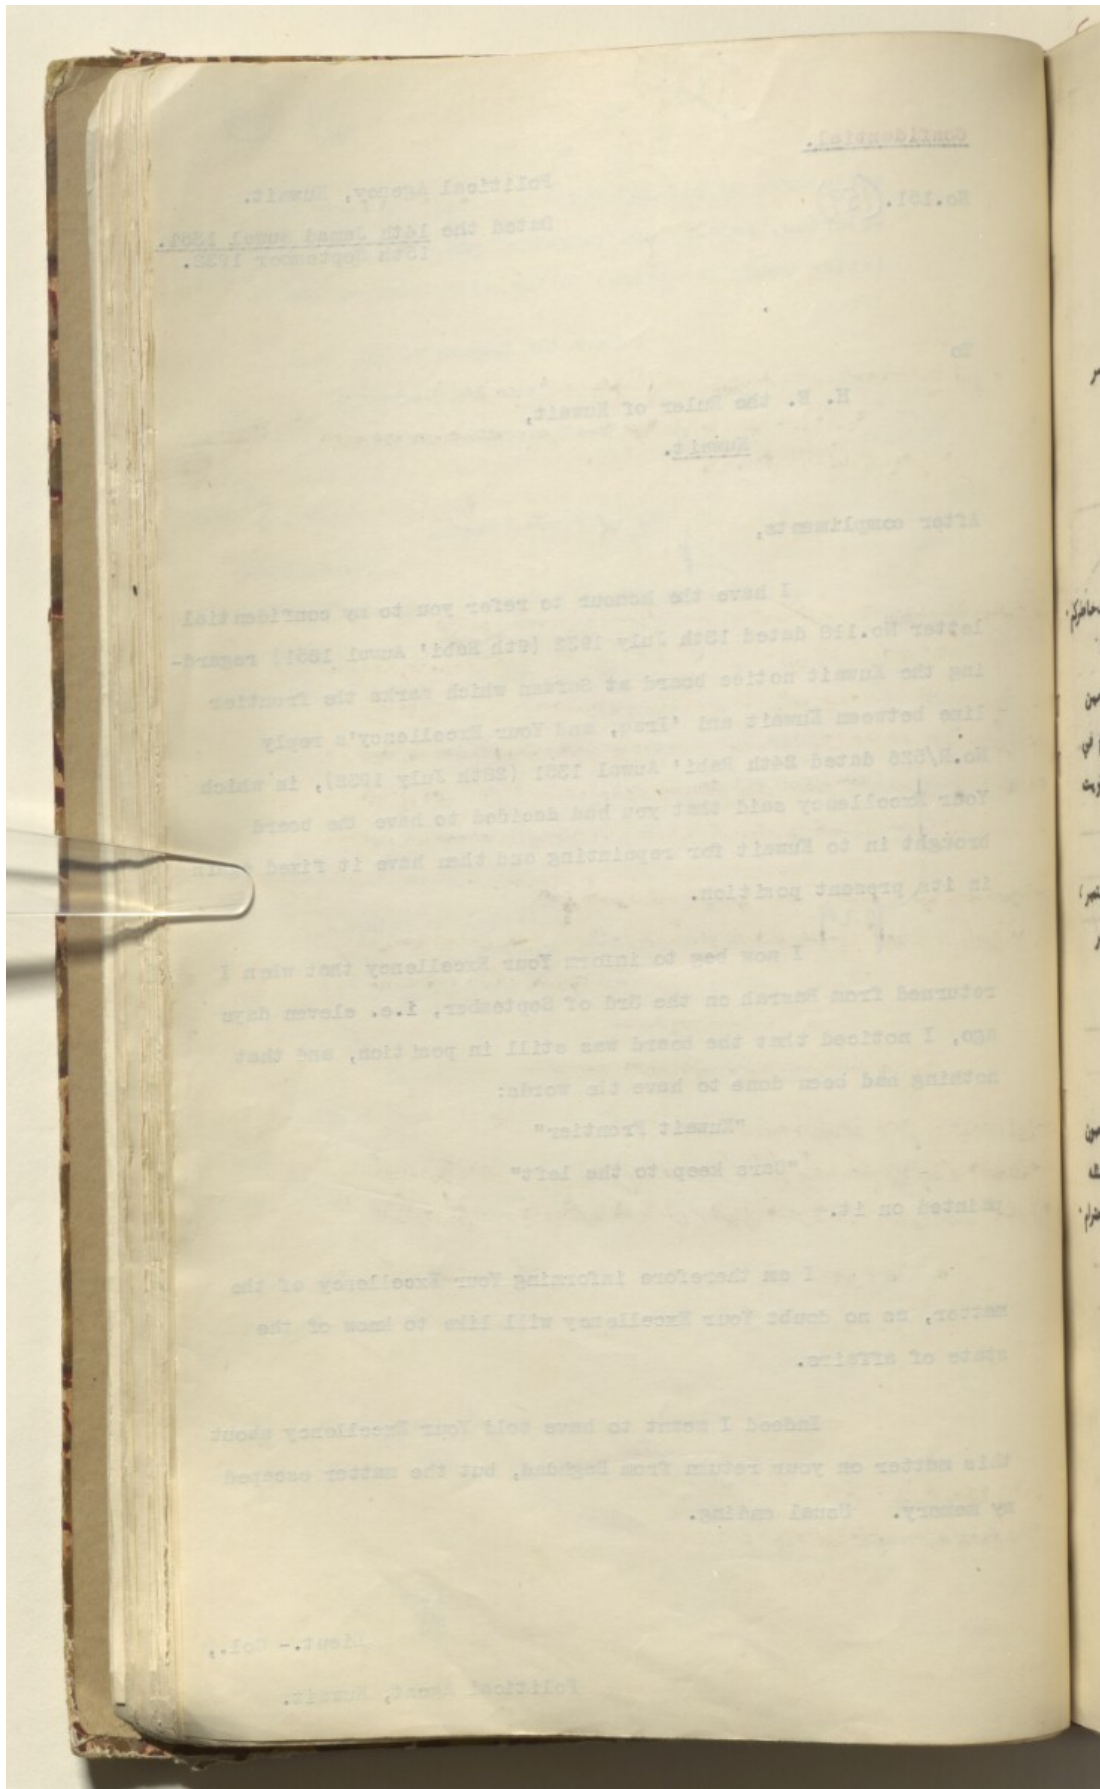 Confidential.
No.151.
Political Agency, Kuwait.
Dated the 14th Jamad Auwal 1351.
15th September 1932.
To
H. E. the Ruler of Kuwait,
Kuwait.
After compliments,
I have the honour to refer you to my confidential
letter dated 13th July 1932 (9th Rabi' Auwal 1351) regard-
ing the Kuwait notice board at Safwan which marks the frontier
line between Kuwait and 'Iraq, and Your Excellency's reply
dated 24th Rabi' Auwal 1351 (28th July 1932), in which
Your Excellency said that you had decided to have the board
brought in to Kuwait for repainting and then have it fixed again
in its present position.
I now beg to inform Your Excellency that when I
returned from Basrah on the 3rd of September, i.e. eleven days
ago, I noticed that the board was still in position, and that
nothing had been done to have the words:
"Kuwait Frontier"
"Cars keep to the left"
painted on it.
I am therefore informing Your Excellency of the
matter, as no doubt Your Excellency will like to know of the
state of affairs.
Indeed I meant to have told Your Excellency about
this matter on your return from Baghdad, but the matter escaped
my memory. Usual ending.
Lieut.-Col.,
Political Agent, Kuwait.